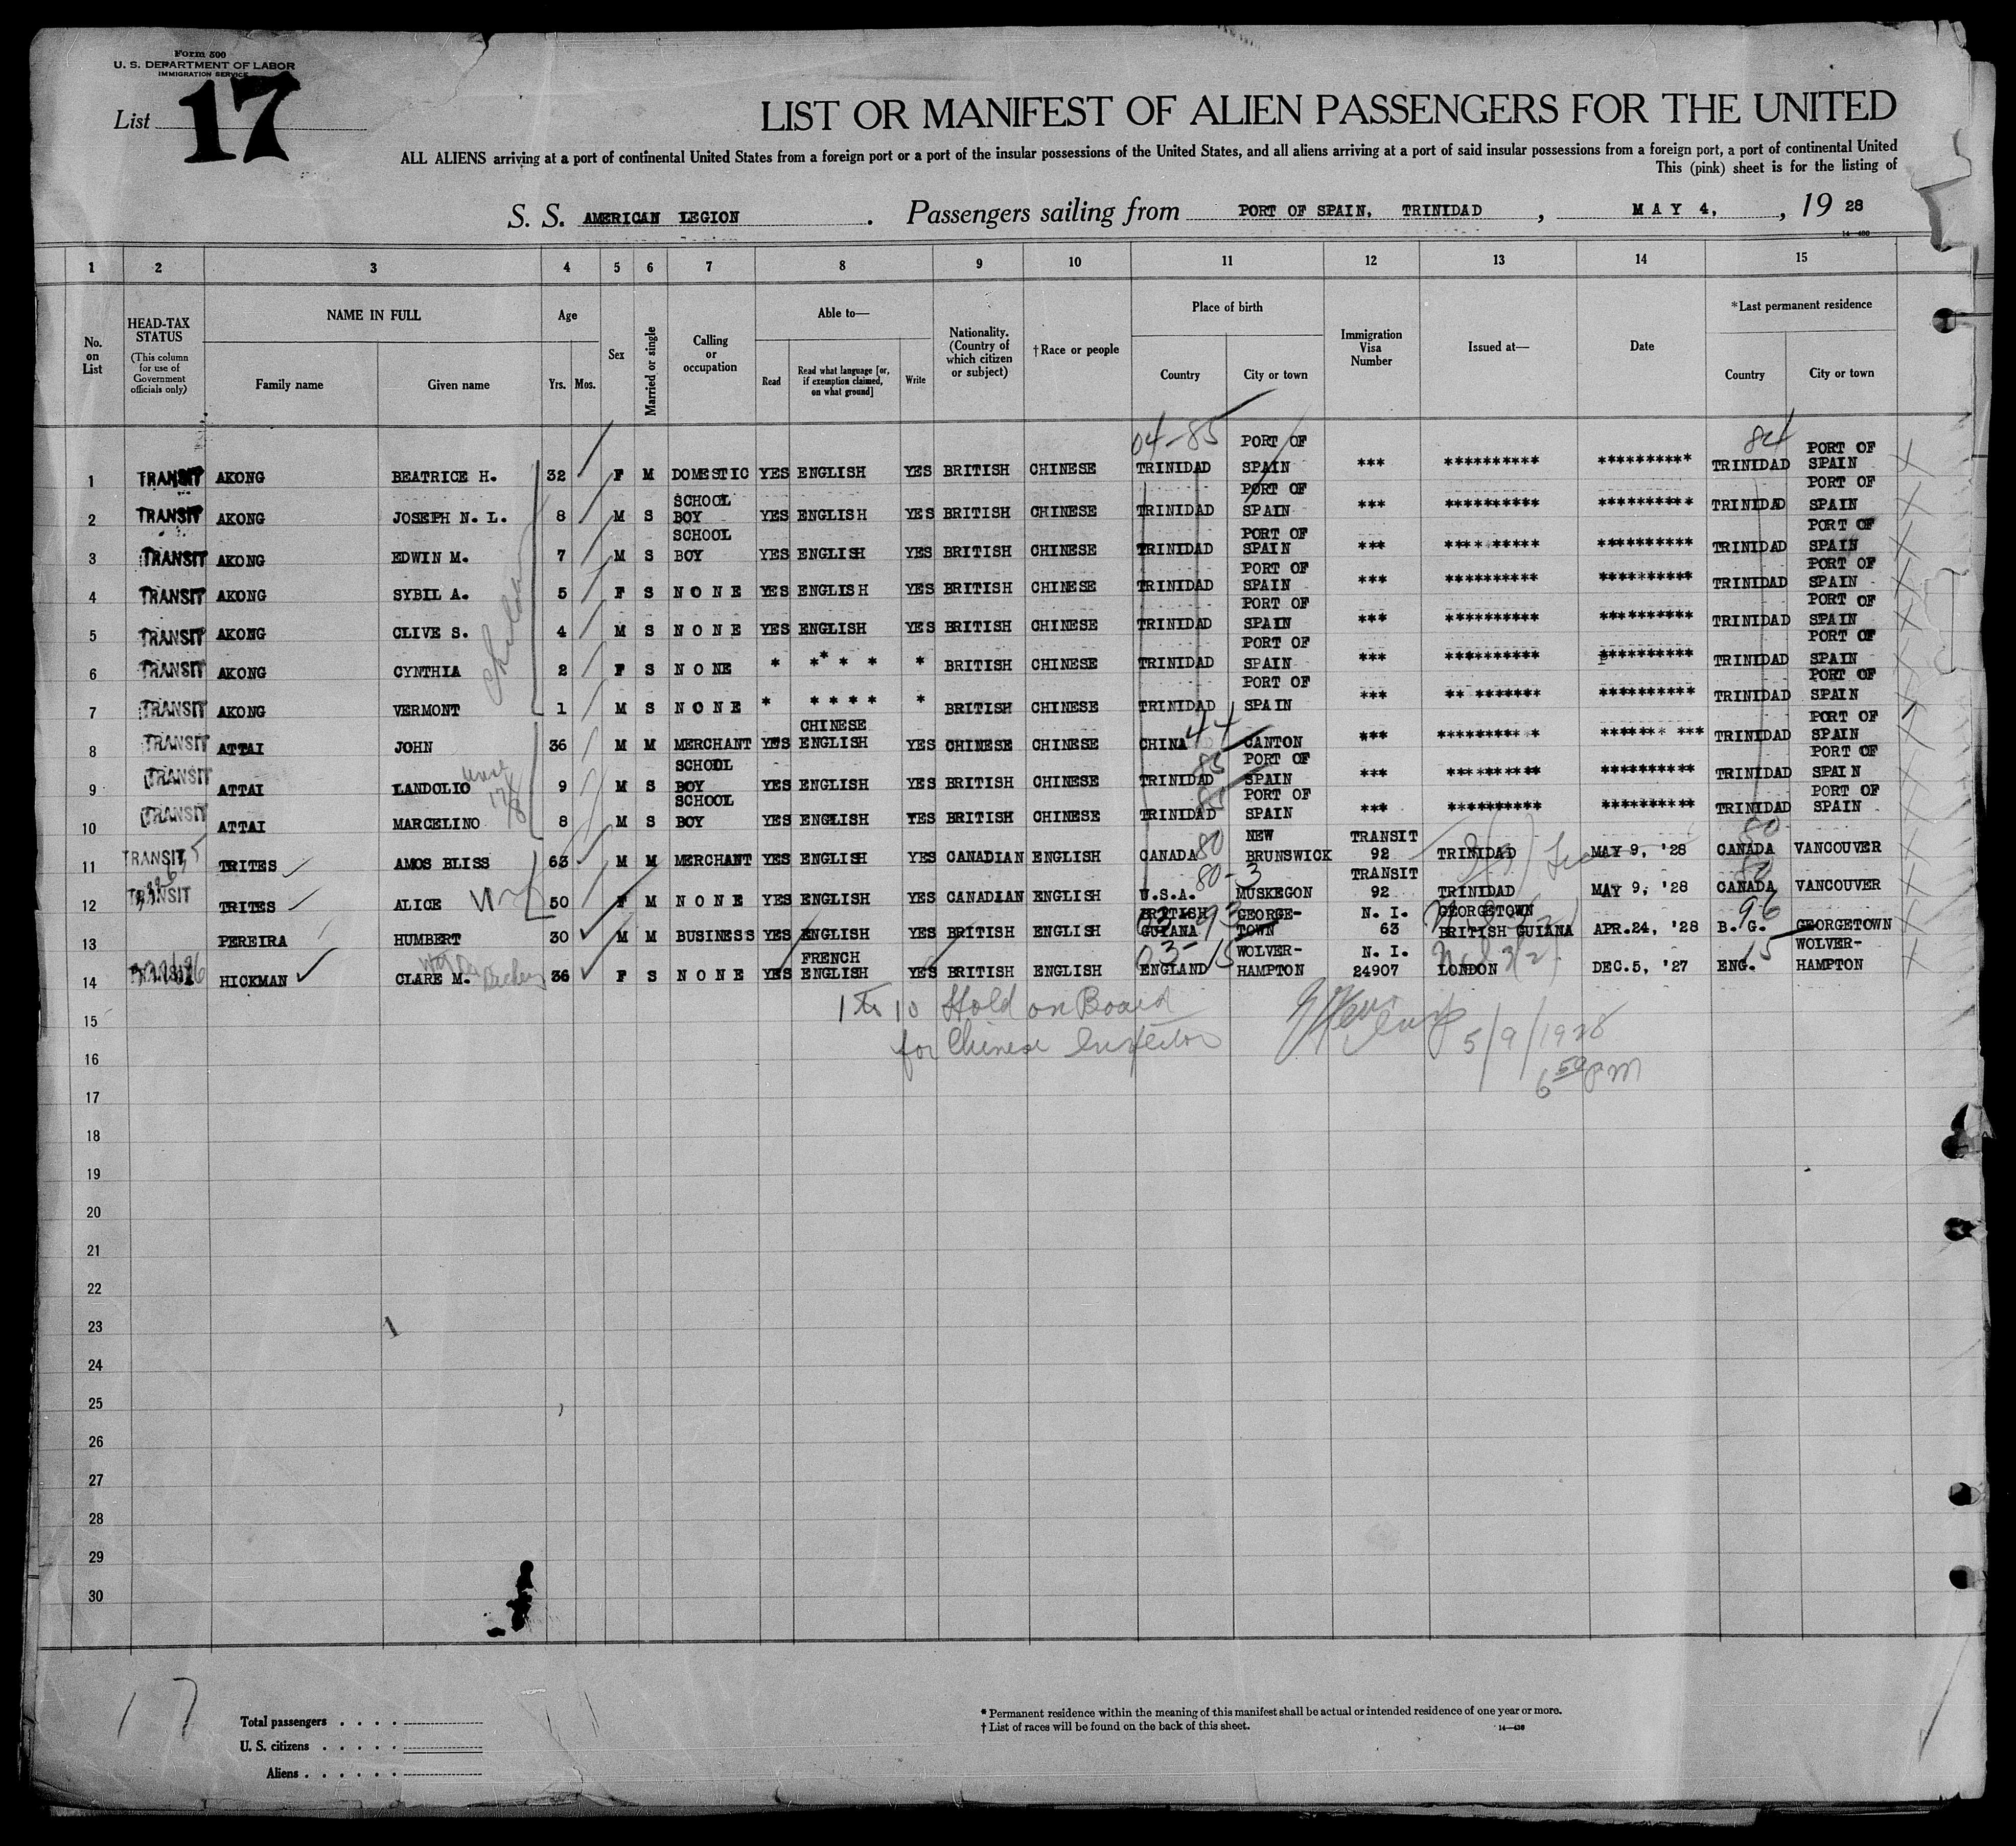 Form 500
U. S. DEPARTMENT OF LABOR
IMMIGRATION SERVICE
List 17
LIST OR MANIFEST OF ALIEN PASSENGERS FOR THE UNITED
ALL ALIENS arriving at a port of continental United States from a foreign port or a port of the insular possessions of the United States, and all aliens arriving at a port of said insular possessions from a foreign port, a port of continental United
This (pink) sheet is for the listing of
S. S. AMERICAN LEGION . Passengers sailing from PORT OF SPAIN, TRINIDAD , MAY 4, , 19 28
1 2 3 4 5 6 7 8 9 10 11 12 13 14 15
No. on List
HEAD-TAX STATUS (This column for use of Government officials only)
NAME IN FULL
Family name Given name
Age
Yrs. Mos.
Sex
Married or single
Calling or occupation
Able to—
Read
Read what language [or, if exemption claimed, on what ground]
Write
Nationality. (Country of which citizen or subject)
†Race or people
Place of birth
Country City or town
Immigration Visa Number
Issued at—
Date
*Last permanent residence
Country City or town
04-85 84
1 TRANSIT AKONG BEATRICE H. 32 F M DOMESTIC YES ENGLISH YES BRITISH CHINESE TRINIDAD PORT OF SPAIN *** ********** ********** TRINIDAD PORT OF SPAIN
2 TRANSIT AKONG JOSEPH N. L. 8 M S SCHOOL BOY YES ENGLISH YES BRITISH CHINESE TRINIDAD PORT OF SPAIN *** ********** ********** TRINIDAD PORT OF SPAIN
3 TRANSIT AKONG EDWIN M. 7 M S SCHOOL BOY YES ENGLISH YES BRITISH CHINESE TRINIDAD PORT OF SPAIN *** ********** ********** TRINIDAD PORT OF SPAIN
4 TRANSIT AKONG SYBIL A. 5 F S NONE YES ENGLISH YES BRITISH CHINESE TRINIDAD PORT OF SPAIN *** ********** ********** TRINIDAD PORT OF SPAIN
5 TRANSIT AKONG CLIVE S. 4 M S NONE YES ENGLISH YES BRITISH CHINESE TRINIDAD PORT OF SPAIN *** ********** ********** TRINIDAD PORT OF SPAIN
6 TRANSIT AKONG CYNTHIA 2 F S NONE * **** * BRITISH CHINESE TRINIDAD PORT OF SPAIN *** ********** ********** TRINIDAD PORT OF SPAIN
7 TRANSIT AKONG VERMONT 1 M S NONE * **** * BRITISH CHINESE TRINIDAD PORT OF SPAIN *** ** ******* ********** TRINIDAD PORT OF SPAIN
8 TRANSIT ATTAI JOHN 36 M M MERCHANT YES CHINESE ENGLISH YES CHINESE CHINESE CHINA 44 CANTON *** ********* * ******* *** TRINIDAD PORT OF SPAIN
9 TRANSIT ATTAI LANDOLIO 9 M S SCHOOL BOY YES ENGLISH YES BRITISH CHINESE TRINIDAD 85 PORT OF SPAIN *** ********** ********** TRINIDAD PORT OF SPAIN
10 TRANSIT ATTAI MARCELINO 8 M S SCHOOL BOY YES ENGLISH YES BRITISH CHINESE TRINIDAD 85 PORT OF SPAIN *** ********** ********** TRINIDAD PORT OF SPAIN
11 TRANSIT TRITES AMOS BLISS 63 M M MERCHANT YES ENGLISH YES CANADIAN ENGLISH CANADA 80 NEW BRUNSWICK TRANSIT 92 TRINIDAD MAY 9, '28 CANADA 80 VANCOUVER
12 TRANSIT TRITES ALICE 50 F M NONE YES ENGLISH YES CANADIAN ENGLISH U.S.A. 80-3 MUSKEGON TRANSIT 92 TRINIDAD MAY 9, '28 CANADA 80 VANCOUVER
13 PEREIRA HUMBERT 30 M M BUSINESS YES ENGLISH YES BRITISH ENGLISH BRITISH GUIANA 93 GEORGE- TOWN N. I. 63 GEORGETOWN BRITISH GUIANA APR.24, '28 B. G. 96 GEORGETOWN
14 TRANSIT HICKMAN CLARE M. 36 F S NONE YES FRENCH ENGLISH YES BRITISH ENGLISH ENGLAND 03-15 WOLVER- HAMPTON N. I. 24907 LONDON DEC.5, '27 ENG. 15 WOLVER- HAMPTON
15 1 to 10 Hold on Board
for Chinese Inspector 5/9/1928
16
6 50 PM
17
18
19
20
21
22
23
24
25
26
27
28
29
30
17
Total passengers . . . .
U. S. citizens . . . . .
Aliens . . . . . .
* Permanent residence within the meaning of this manifest shall be actual or intended residence of one year or more.
† List of races will be found on the back of this sheet. 14—430